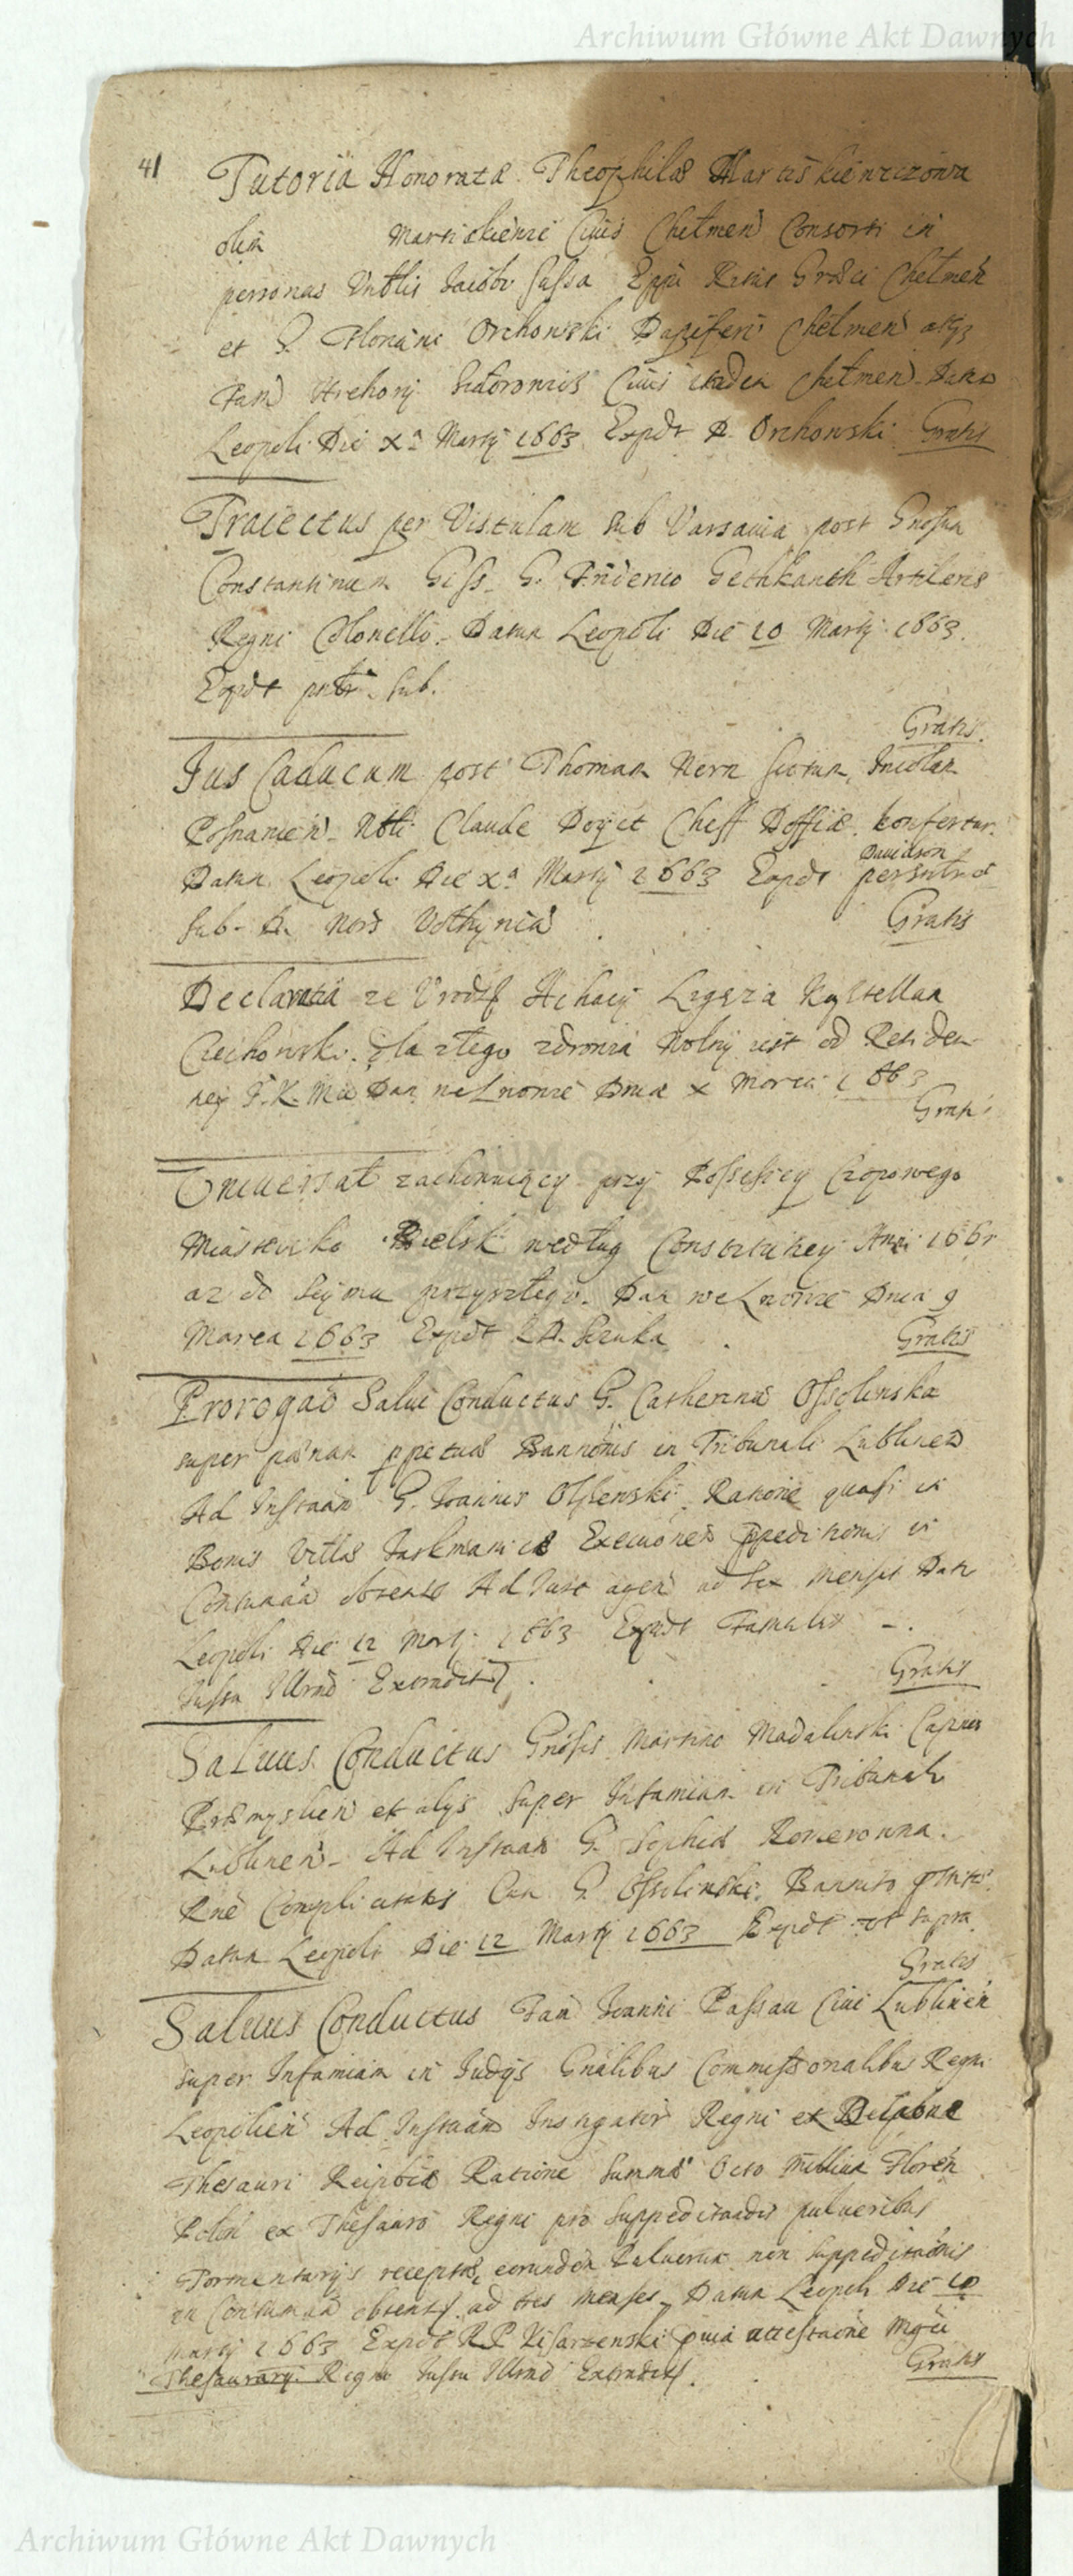 Archiwum Główne Akt Dawnych
41
Tutoria Honoratæ Theophilæ Martiskiewiczowa
olim Martiskiewic Civis Chełmen Consorti in
personas Vnblis Jacobi Sussa Eppi Ritus Græci Chełmen
et G. Floriani Orchowski Dapiferi Chełmen atqз
Fam Hrehory Civis itidem Chełmen Datæ
Leopoli Die Xª Martij 1663 Expdt D. Orchowski Gratis
Traiectus per Vistulam sub Varsavia post Gnosum
Constantinum Giss G. Friderico Gethkanth Artileriæ
Regni Colonello. Datum Leopoli Die 10 Martij 1663.
Expdt pntr. sub.
Gratis.
Jus Caducum post Thomam Nern Scotum, Incolam
Posnanien. Nbli Claude Cheff Dossiæ. konfertur.
Datum Leopoli Die Xª Martij 1663 Expdt
Davidson
sub. D. Nors Vołhynia
Gratis
Declaratia ze Vrodź Achacy Ligęza Kasztellan
Czechowski. dla złego zdrowia wolny iest od Residen-
cey J.K.Mci Dan we Lwowie Dnia X Marca 1663
Gratis
Vniuersał zachowuiący przy Possessiey Czopowego
Miasteczko Bielsk według Constitucyey Anni 1661
az do Seymu przyszłego. Dan we Lwowie Dnia 9
Marca 1663 Expdt R.D. Sczuka
Gratis
Prorogaō Salui Conductus G. Catherinæ Ossolinska
super pænam ppetuæ Bannionis in Tribunali Lublinen
Ad Instaān G. Joannis Ossolenski Ratione quasi in
Bonis Villæ Execuōnes
Contumaā obtentæ Ad Jure agen ad Sex Menses Dat
Leopoli Die 12 Martj 1663 Expdt Famulus -.
Jussu Illrmi Extradit
Gratis
Saluus Conductus Gnosis Martino Madalinski Capneo
Præmyslien et alijs Super Infamiam in Tribunali
Lublinen. Ad Instaān G. Sophiæ
Rne Complicitatis Cum G. Ossolinski. Bannito
Datum Leopoli Die 12 Martij 1663 Expdt vt supra.
Gratis
Saluus Conductus Fam Joanni Passau Ciui Lublinen
super Infamiam in Judijs Gnalibus Commissionalibus Regni
Leopolien Ad Instaān Instigator Regni et Delatore
Thesauri Reipbcæ Ratione Summæ Octo Millium Floren
Polon ex Thesauro Regni pro suppeditandis pulueribus
Tormentarijs receptæ, eorundem Puluerum non suppeditaōnis
in Contumaā obtent. ad tres menses. Datum Leopoli Die 10
Martij 1663 Expdt R.P. Pisarzenski attestaōne Mgci
Thesaurarij Regni Jussu Illrmi Extradit.
Gratis
Archiwum Główne Akt Dawnych